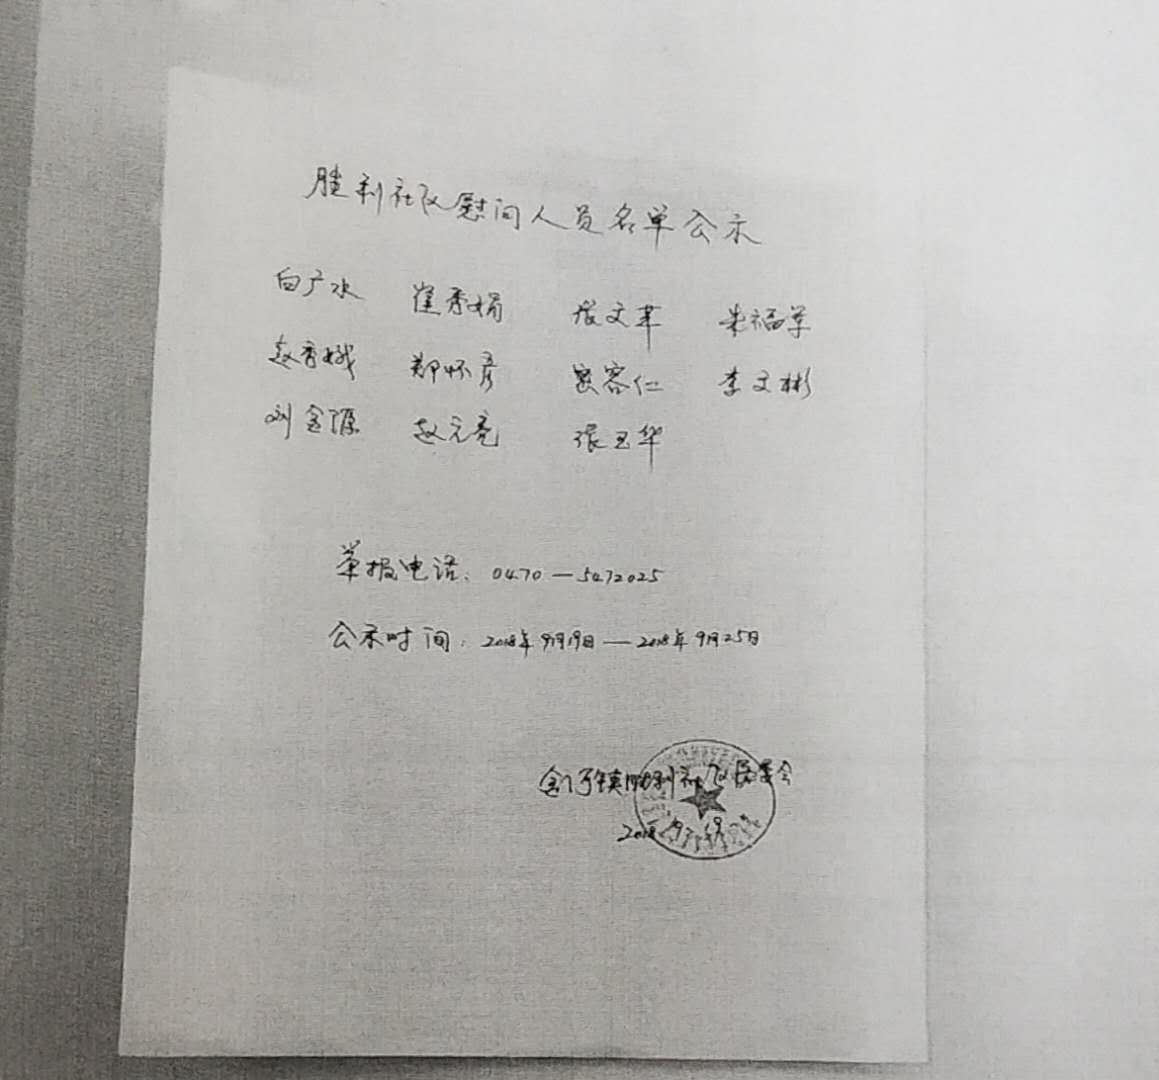 胜利社区慰问人员名单公示
白广水 崔秀娟 张文革 朱福军
赵香娥 郑怀彦 容仁 李文彬
刘金源 赵元亮 张玉华
举报电话：0470—5472025
公示时间：2018年9月19日—2018年9月25日
金河镇胜利社区居委会
2018年9月19日